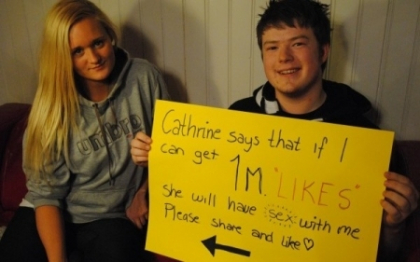 Cathrine says that if I
can get 1M "LIKES"
she will have sex with me
Please share and like♡